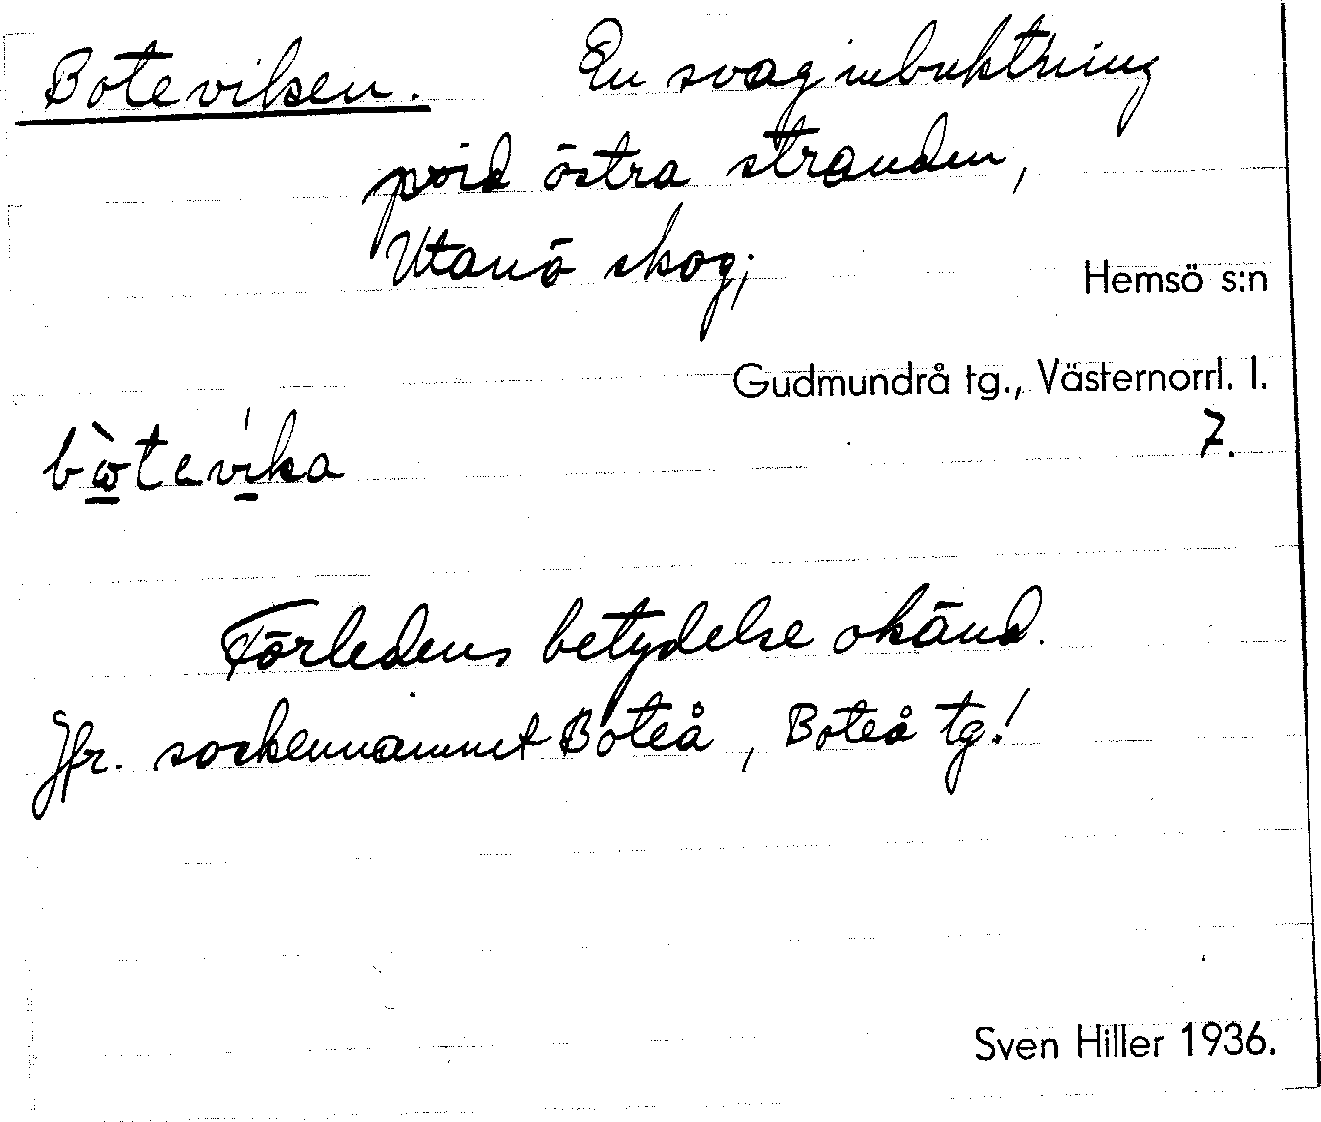 Boteviken. En svag inbuktning
vid östra stranden,
Utanö skog;
Hemsö s:n
Gudmundrå tg., Västernorrl. l.
7.
bὼtevi̱ka
Förledens betydelse okänd.
Jfr. sockennamnet Boteå, Boteå tg!
Sven Hiller 1936.